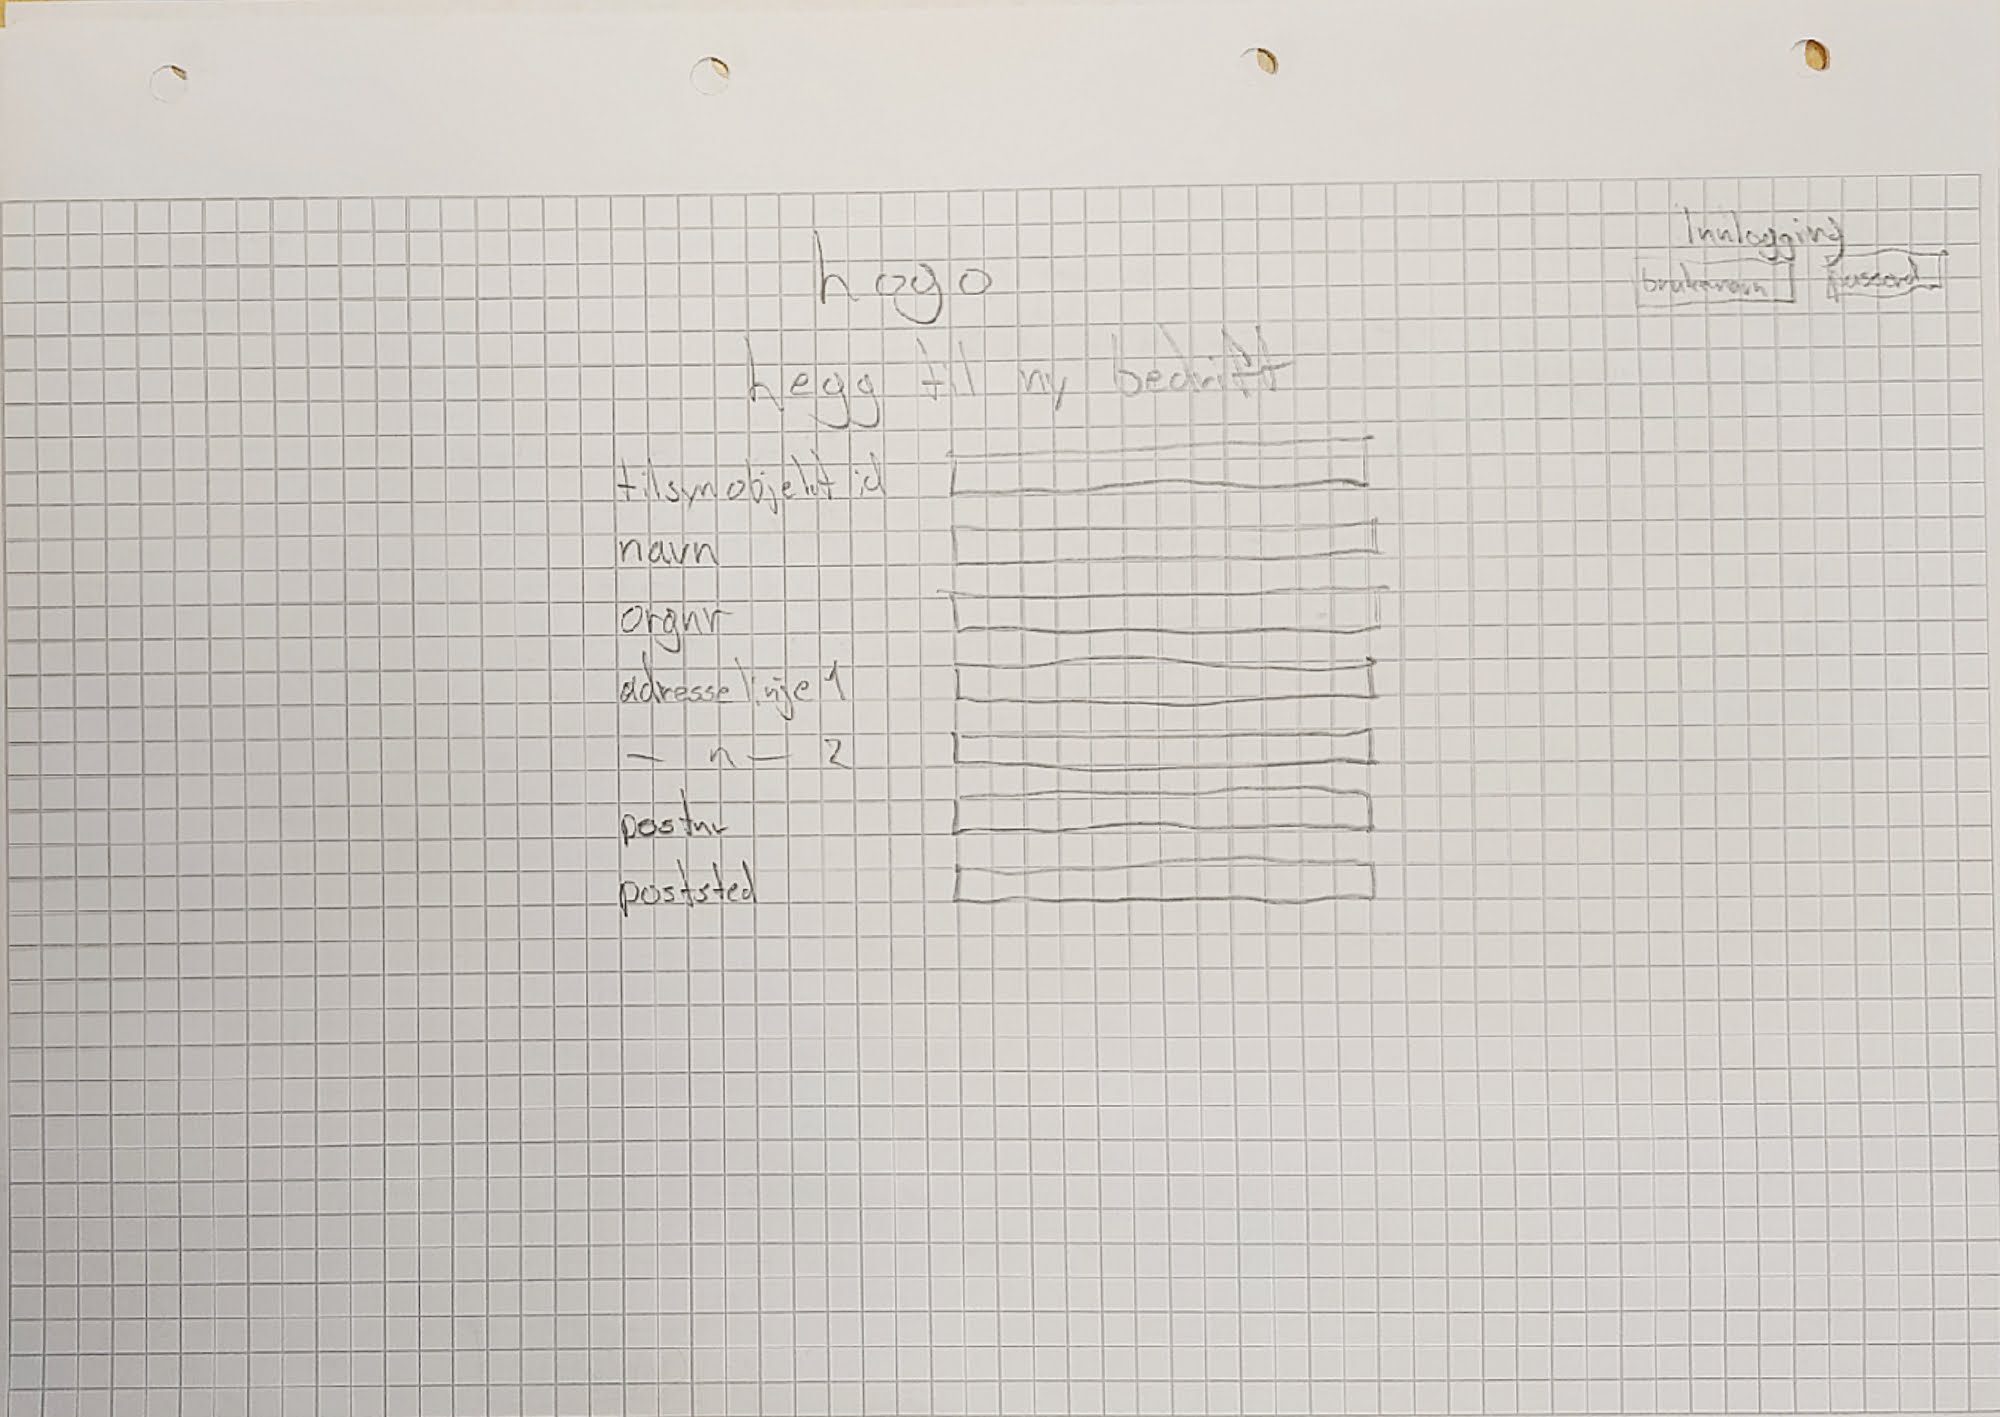 Innlogging
brukernavn passord
Logo
Legg til ny bedrift
tilsynobjekt id
navn
orgnr
adresselinje 1
— n — 2
postnr
poststed